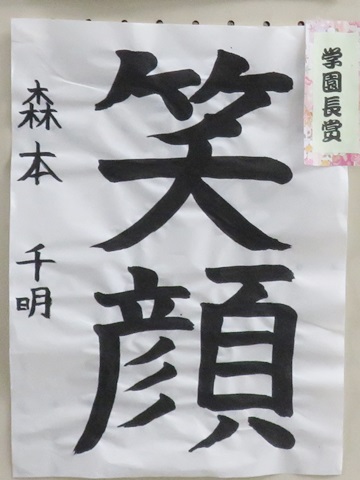 学園長賞
笑顔
森本 千明